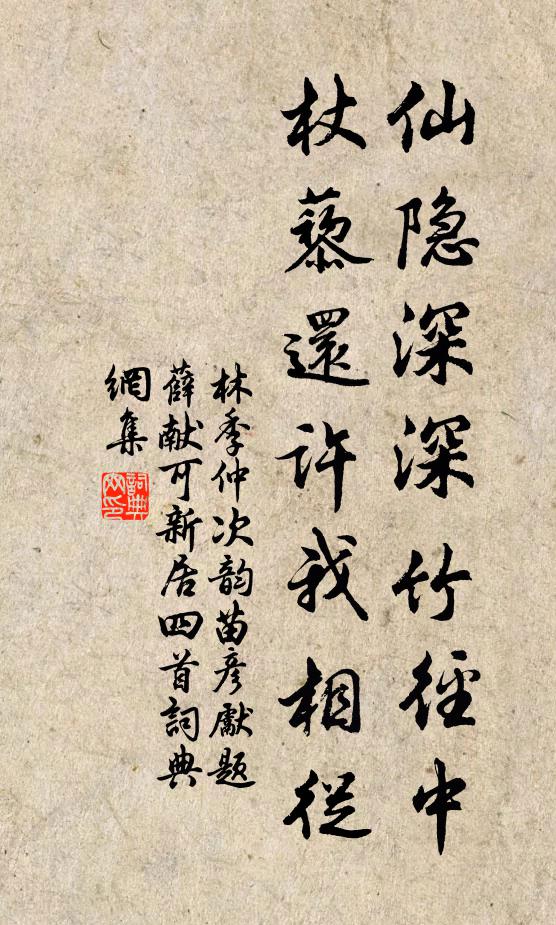 仙隐深深竹徑中
杖藜還许我相從
林季仲次韵苗彦獻题
薛献可新居四首詞典
網集
詞典
网印